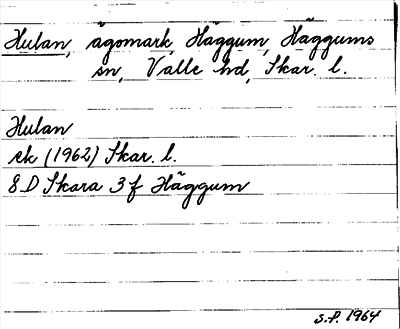 Hulan, ägomark, Häggum, Häggums
sn, Valle hd, Skar. l.
Hulan
ek (1962) Skar. l.
8D Skara 3f Häggum
S.P. 1964